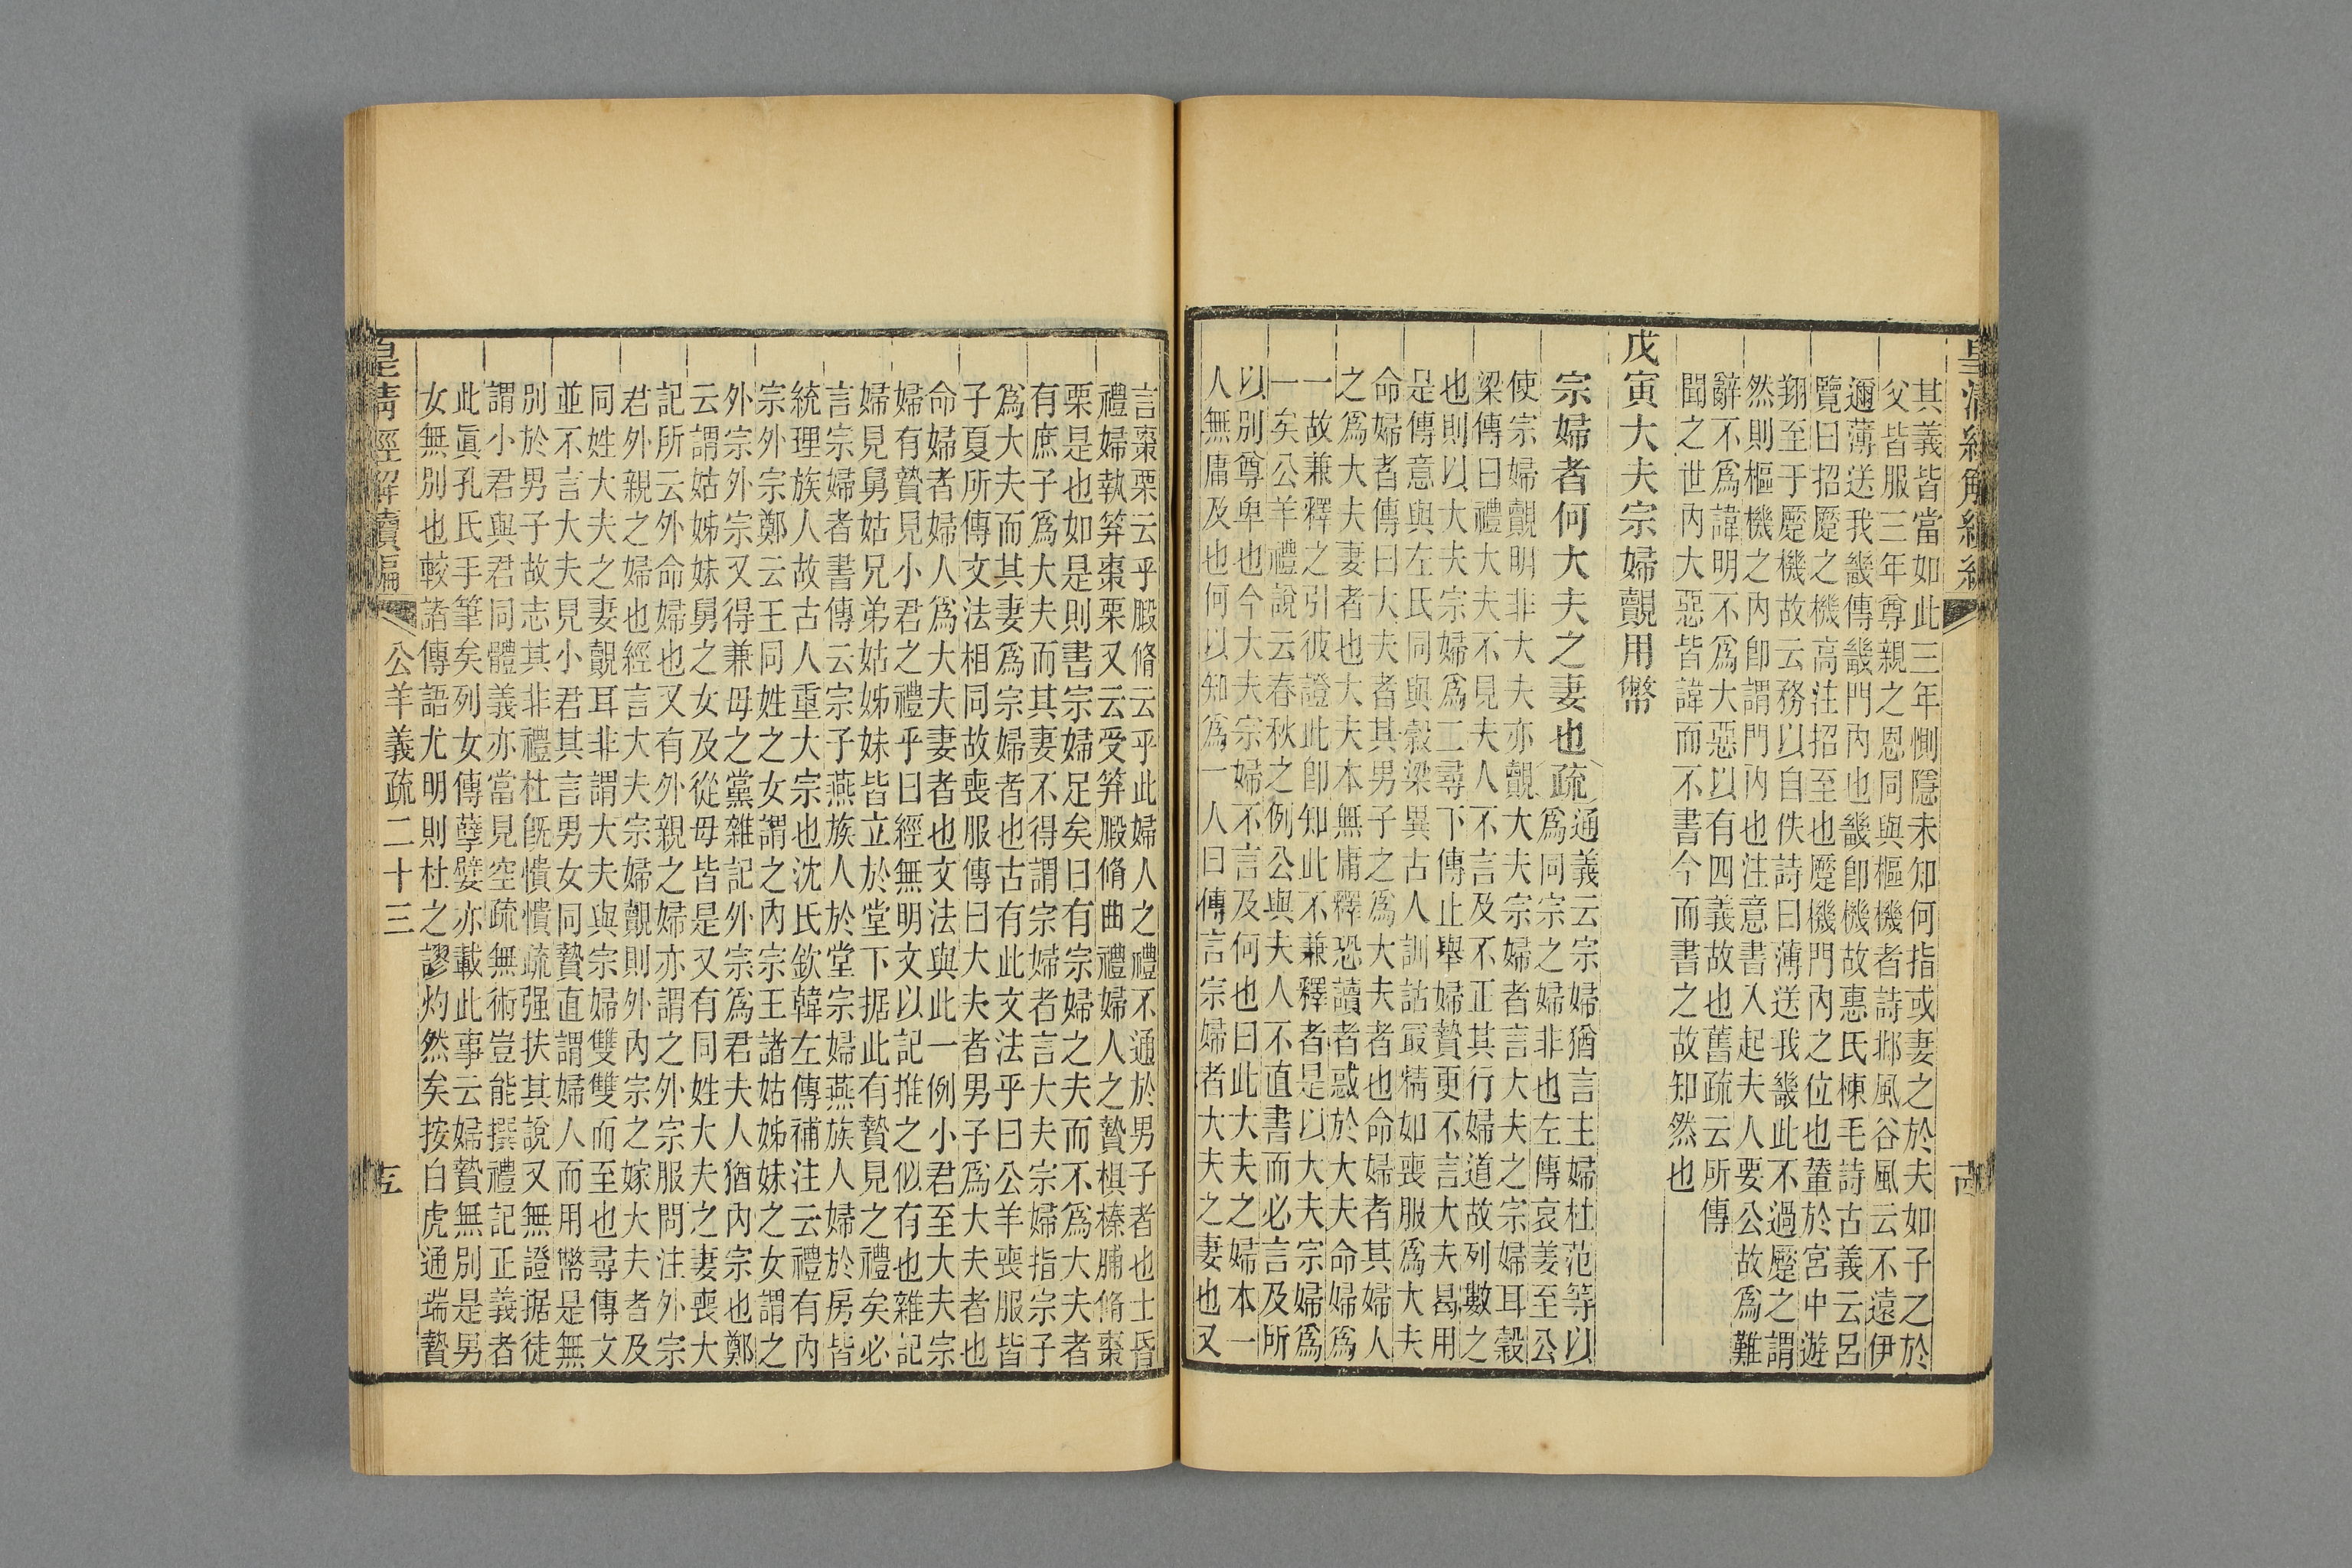 皇清經解續編
其義皆當如此三年惻隱未知何指或妻之於夫如子之於
父皆服三年尊親之恩同與樞機者詩邶風谷風云不遠伊
邇薄送我畿傳畿門內也畿卽機故惠氏棟毛詩古義云呂
覽曰招蹷之機高注招至也蹷機門內之位也輦於宮中遊
翔至于蹷機故云務以自佚詩曰薄送我畿此不過蹷之謂
然則樞機之內卽謂門內也注意書入起夫人要公故爲難
辭不爲諱明不爲大惡以有四義故也舊疏云所傳
聞之世內大惡皆諱而不書今而書之故知然也
戊寅大夫宗婦覿用幣
宗婦者何大夫之妻也
疏
通義云宗婦猶言主婦杜范等以
爲同宗之婦非也左傳哀姜至公
使宗婦覿明非大夫亦覿大夫宗婦者言大夫之宗婦耳穀
梁傳曰禮大夫不見夫人不言及不正其行婦道故列數之
也則以大夫宗婦爲二尋下傳止舉婦贄更不言大夫曷用
是傳意與左氏同與穀梁異古人訓詁㝡精如喪服爲大夫
命婦者傳曰大夫者其男子之爲大夫者也命婦者其婦人
之爲大夫妻者也大夫本無庸釋恐讀者惑於大夫命婦爲
一故兼釋之引彼證此卽知此不兼釋者是以大夫宗婦爲
一矣公羊禮說云春秋之例公與夫人不直書而必言及所
以別尊卑也今大夫宗婦不言及何也曰此大夫之婦本一
人無庸及也何以知爲一人曰傳言宗婦者大夫之妻也又
言棗栗云乎腶脩云乎此婦人之禮不通於男子者也士昏
禮婦執笲棗栗又云受笲腶脩曲禮婦人之贄椇榛脯脩棗
栗是也如是則書宗婦足矣曰有宗婦之夫而不爲大夫者
有庶子爲大夫而其妻不得謂宗婦者言大夫宗婦指宗子
爲大夫而其妻爲宗婦者也古有此文法乎曰公羊喪服皆
子夏所傳文法相同故喪服傳曰大夫者男子爲大夫者也
命婦者婦人爲大夫妻者也文法與此一例小君至大夫宗
婦有贄見小君之禮乎曰經無明文以記推之似有也雜記
婦見舅姑兄弟姑姊妹皆立於堂下据此有贄見之禮矣必
言宗婦者書傳云宗子燕族人於堂宗婦燕族人婦於房皆
統理族人故古人重大宗也沈氏欽韓左傳補注云禮有內
宗外宗鄭云王同姓之女謂之內宗王諸姑姊妹之女謂之
外宗外宗又得兼母之黨雜記外宗爲君夫人猶內宗也鄭
云謂姑姊妹舅之女及從母皆是又有同姓大夫之妻喪大
記所云外命婦也又有外親之婦亦謂之外宗服問注外宗
君外親之婦也經言大夫宗婦覿則外內宗之嫁大夫者及
同姓大夫之妻覿耳非謂大夫與宗婦雙雙而至也尋傳文
並不言大夫見小君其言男女同贄直謂婦人而用幣是無
別於男子故志其非禮杜旣憒憒疏强扶其說又無證据徒
謂小君與君同體義亦當見空疏無術豈能撰禮記正義者
此眞孔氏手筆矣列女傳孽嬖亦載此事云婦贄無別是男
女無別也較諸傳語尤明則杜之謬灼然矣按白虎通瑞贄
皇清經解續編
公羊義疏二十三